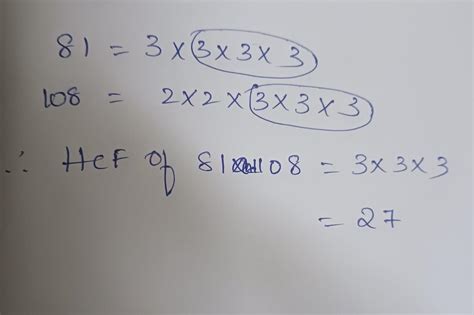 81 = 3 × 3 × 3 × 3
108 = 2 × 2 × 3 × 3 × 3
∴ HCF of 81 108 = 3 × 3 × 3
= 27